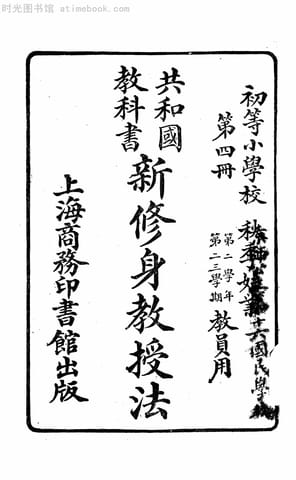 时光图书馆 atimebook.com
初等小學校
第四冊
秋季始業
第二學年
第二三學期
教員用
共和國
教科書
新修身教授法
上海商務印書館出版
十六國民學校